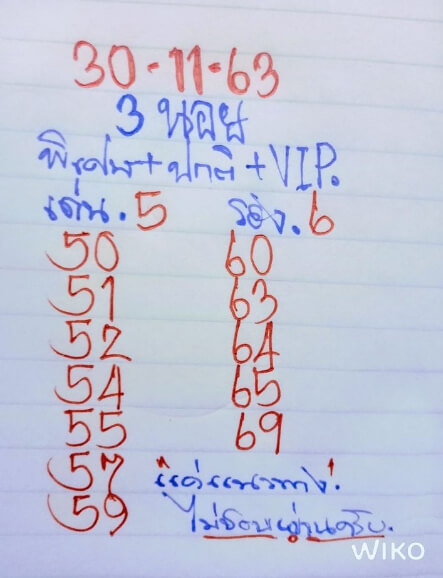 30-11-63
3 นอย
พิเศษ+ปกติ+VIP.
เด่น.5 รอง.6
50 60
51 63
52 64
54 65
55 69
57 "แค่แนวทาง"
59 ไม่ชอบผ่านครับ.
WIKO